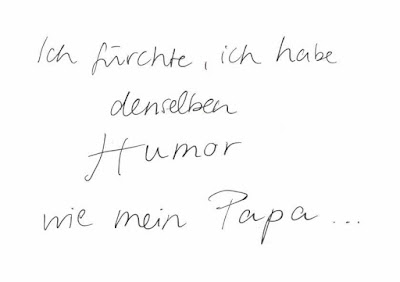 Ich fürchte, ich habe
denselben
Humor
wie mein Papa...